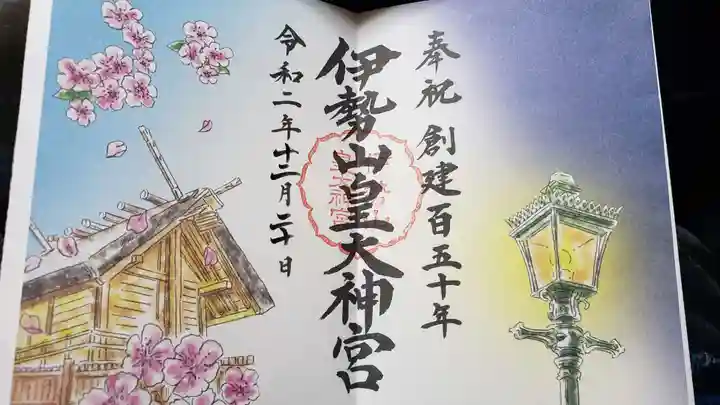 奉祝 創建百五十年
伊勢山皇大神宮
令和二年十二月二十日